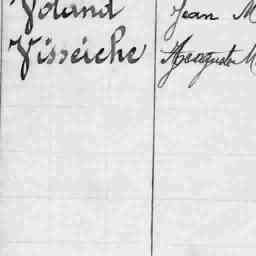 Voland Jean M
Visseiche Auguste M